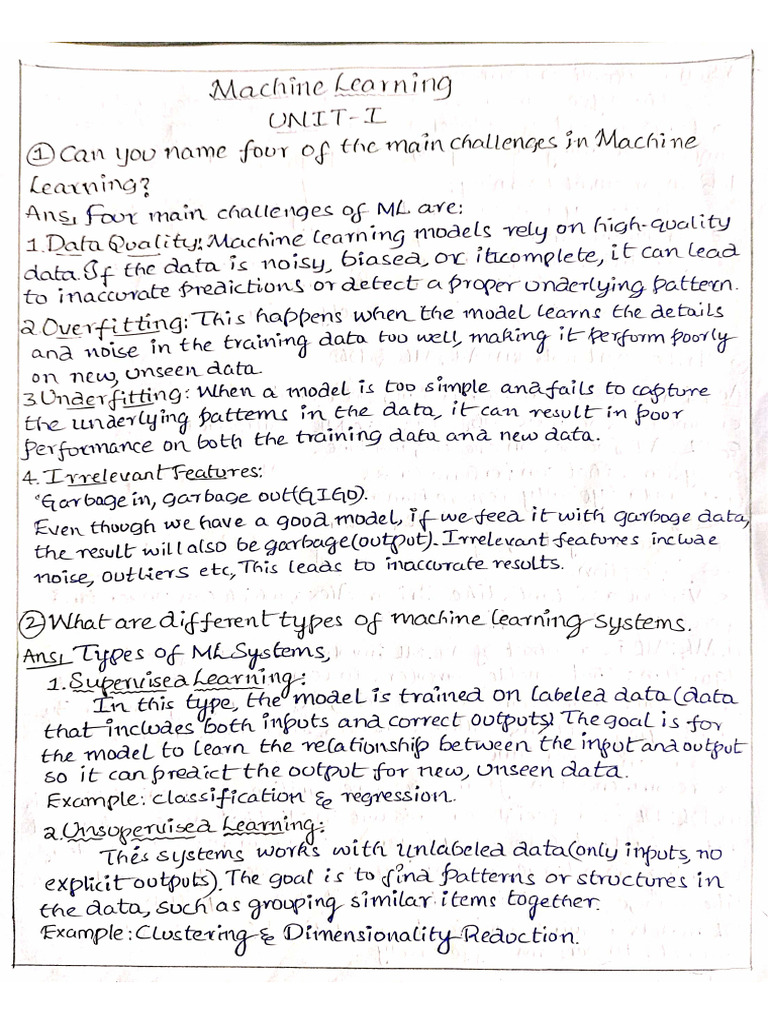 Machine Learning
UNIT-I
① Can you name four of the main challenges in Machine
Learning?
Ans, Four main challenges of ML are:
1. Data Quality: Machine learning models rely on high-quality
data. If the data is noisy, biased, or incomplete, it can lead
to inaccurate predictions or detect a proper underlying pattern.
2. Overfitting: This happens when the model learns the details
and noise in the training data too well, making it perform poorly
on new, unseen data.
3 Underfitting: When a model is too simple and fails to capture
the underlying patterns in the data, it can result in poor
performance on both the training data and new data.
4. Irrelevant Features:
Garbage in, garbage out (GIGO).
Even though we have a good model, if we feed it with garbage data,
the result will also be garbage (output). Irrelevant features include
noise, outliers etc, This leads to inaccurate results.
② What are different types of machine learning systems.
Ans, Types of ML Systems,
1. Supervised Learning:
In this type, the model is trained on labeled data (data
that includes both inputs and correct outputs) The goal is for
the model to learn the relationship between the input and output
so it can predict the output for new, unseen data.
Example: classification & regression.
2. Unsupervised Learning:
Thés systems works with unlabeled data (only inputs, no
explicit outputs). The goal is to find patterns or structures in
the data, such as grouping similar items together.
Example: Clustering & Dimensionality Reduction.